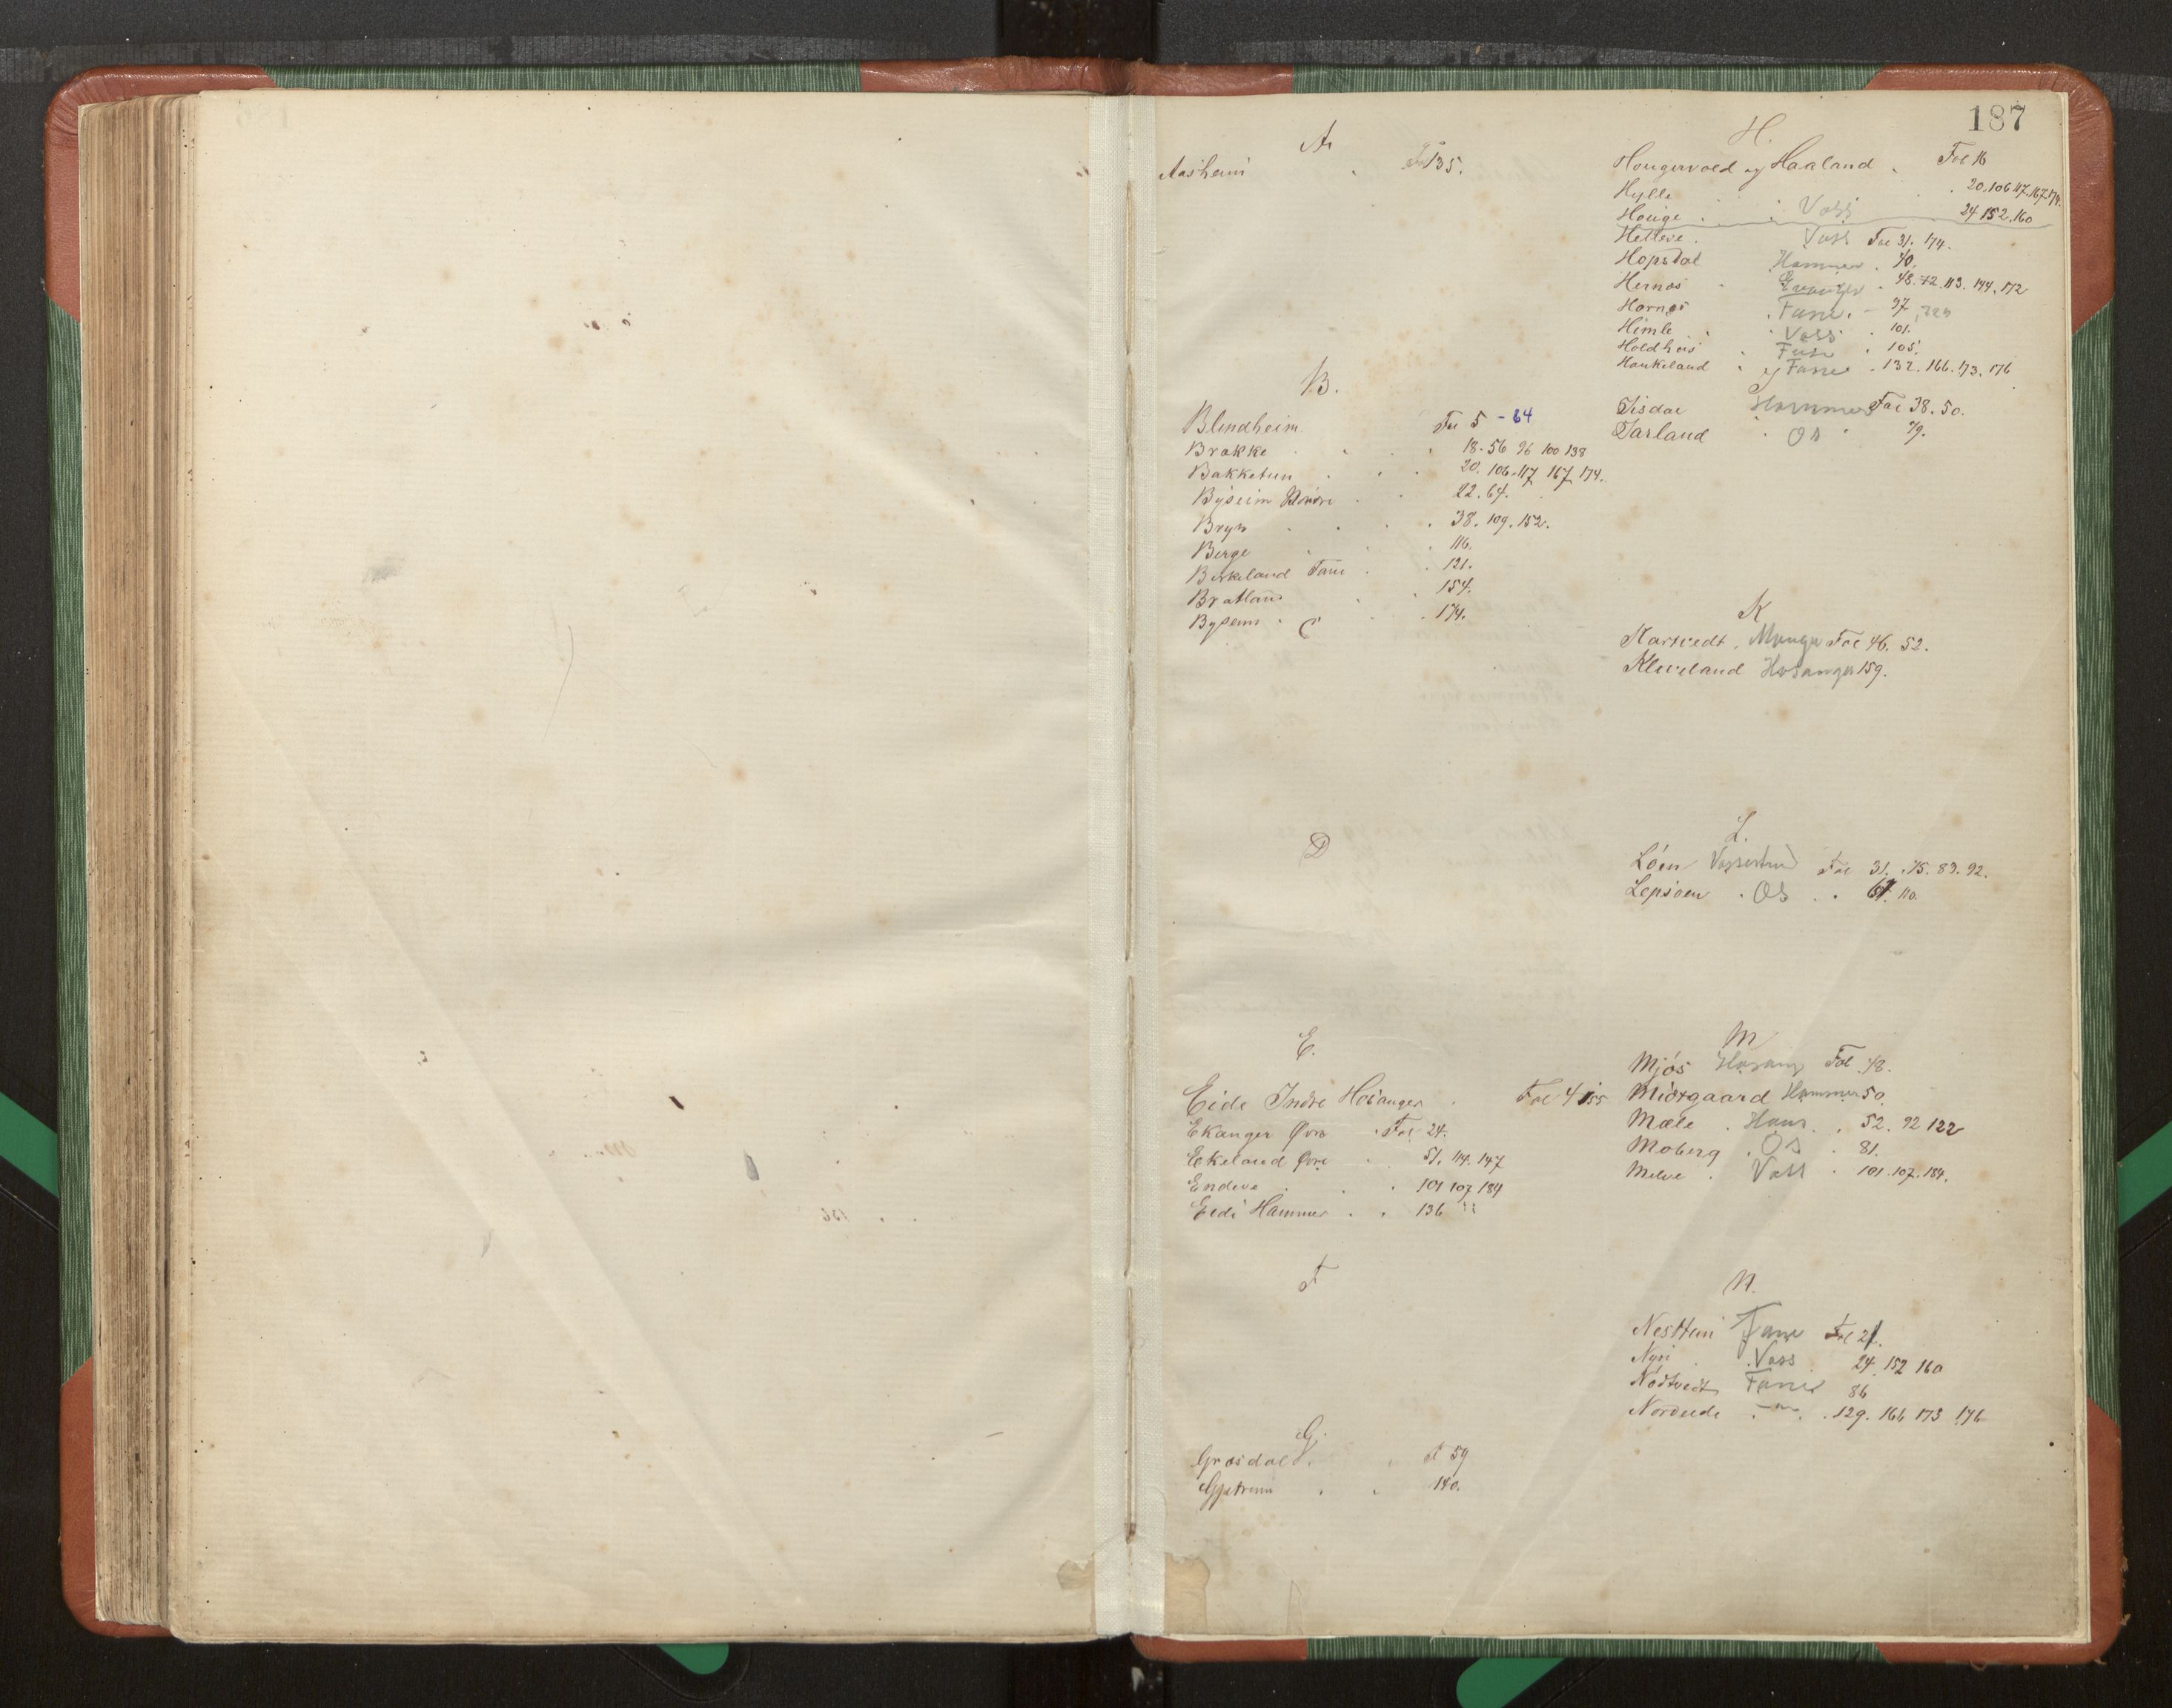 187
A
Aasheim . F 135.
B.
Blindheim Fol 5 - 64
Brakke . . . 18. 56 96 100 138
Bakketun . . . 20. 106. 117 167 174.
Byseim . . 22. 64.
Bryn . . . . 38. 109. 152.
Berge . . 116.
Birkeland Fane . . 121.
Bratland . . 154.
Byseim . . 174.
C
D
E.
Eide Indre Hosanger . Fol 4 155
Ekanger Øvre . Fol 24.
Ekeland Øvre . 51. 114. 147
Endeve . . . 101 107 184
Eide Hammer . . 136
F
G.
Græsdal . . F 59
Gjetreim . . 140.
H.
Hougervold og Haaland . Fol 16
Hylle . . 20. 106 117. 167. 174.
Houge . . Voss 24 152. 160
Helleve . Voss Fol 31. 174.
Hopsdal Hammer . 40.
Hernæs . . 48. 72. 113. 144. 172
Hornæs . Fane . - 97
Himle . . Voss 101.
Holdhus . Fuse . 105.
Haukeland . Fane . 132. 166. 173. 176
Isdal Hammer Fol 38. 50.
Jarland . Os . 79.
K
Kartvedt . Manger Fol 46. 52.
Kleveland Hosanger 159.
L.
Löen Vossestrand Fol 31. 75. 83. 92.
Lepsöen . Os . . 61. 110.
M
Mjös Hosang Fol 48.
Midtgaard Hammer 50.
Mæle . Haus . . 52. 92 122
Moberg . Os . 81.
Melve . Voss . 101. 107. 184.
N.
Nesttun Fane Fol 21.
Nyre . Voss . 24. 152 160
Nödtvedt Fane 86
Nordeide . - " - . 129. 166 173 176